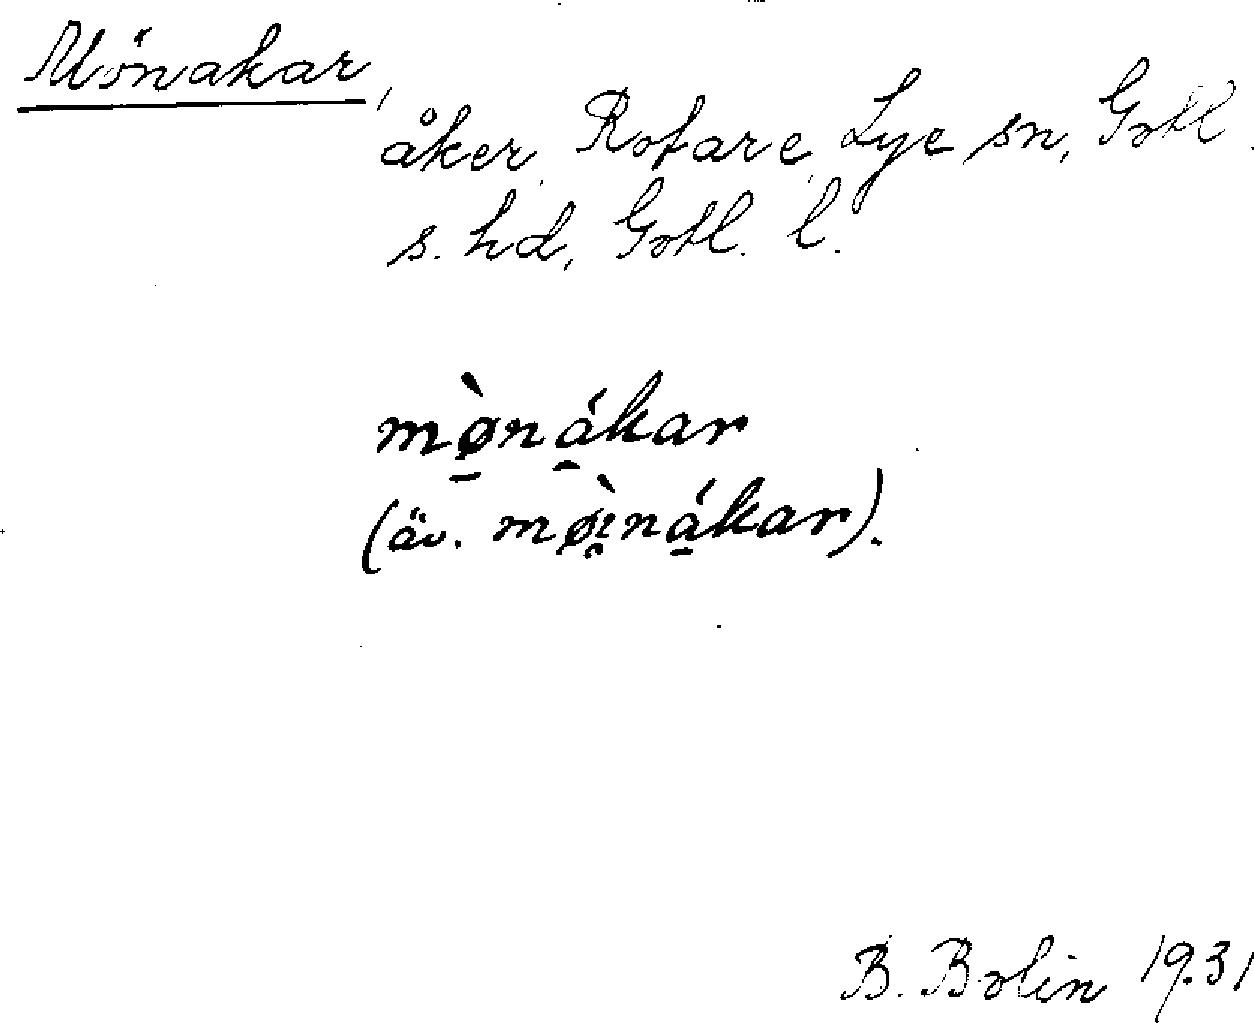 Mönakar,
åker, Rofare, Lye sn, Gotl.
s. hd, Gotl. l.
mø̠̀ná̠kar
(äv. møı̯̀ná̠kar).
B. Bolin 1931